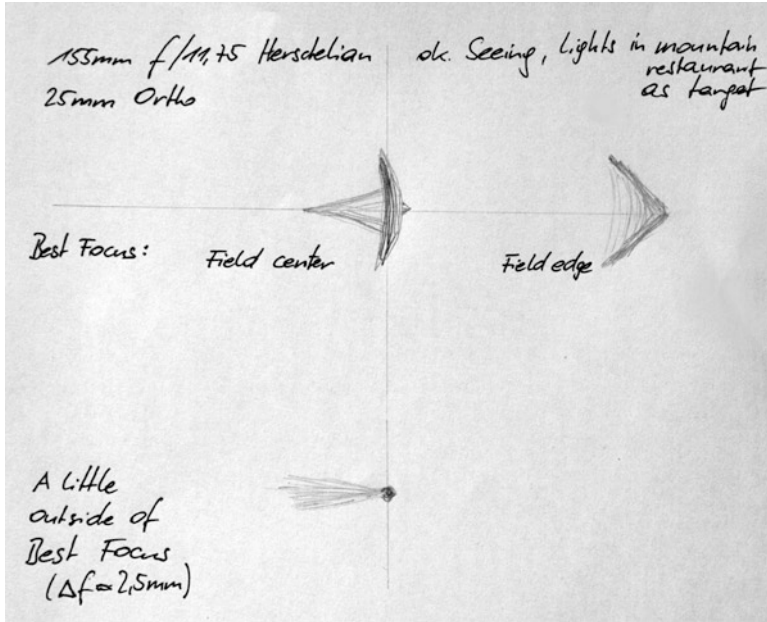 155mm f/11,75 Herschelian
25mm Ortho
ok. Seeing, Lights in mountain
restaurant
as target
Best Focus:
Field center
Field edge
A little
outside of
Best Focus
(Δf≈2,5mm)